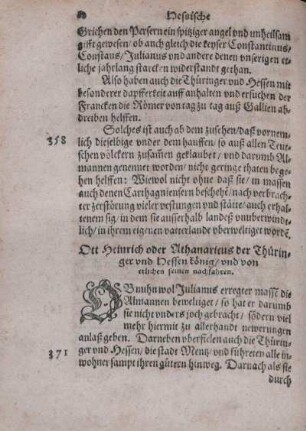 Hessische
Grichen den Persern ein spitziger angel vnd vnheilsam
gifft gewesen / ob auch gleich die keyser Constantinus /
Constans / Julianus vnd andere denen vnserigen et-
liche jahrlang starcken widerstandt gethan.
Also haben auch die Thüringer vnd Hessen mit
besonderer dapfferkeit auff anhalten vnd ersuchen der
Francken die Römer von tag zu tag auß Gallien ab-
treiben helffen.
Solches ist auch ob dem zusehen / daß vornem-
358 lich dieselbige vnder dem hauffen / so auß allen Teut-
schen völckern zusamen geklaubet / vnd darumb Al-
mannen genennet worden / nicht geringe thaten bege-
hen helffen: Wiewol nicht ohne daß sie / in massen
auch denen Carthaginensern beschehẽ / nach verbrach-
ter zerstörung vieler vestungen vnd stätte / auch erhal-
tenem sig / in dem sie ausserhalb landeß vnüberwind-
lich / in ihrem eygenen vatterlande vberweltiget wordẽ.
Ott Heinrich oder Athanaricus der Thürin-
ger vnd Hessen könig / vnd von
etlichen seinen nachfahren.
OB nuhn wol Julianus erregter massẽ die
Almannen beweltiget / so hat er darumb
sie nicht vnders joch gebracht / sõdern viel
mehr hiermit zu allerhande newerungen
anlaß geben. Darneben vberfielen auch die Thürin-
371 ger vnd Hessen / die stadt Mentz / vnd führeten alle in-
wohner sampt ihren gütern hinweg. Darnach als sie
durch